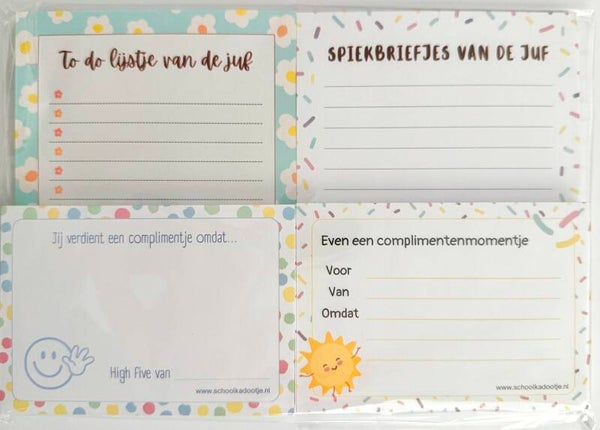 To do lijstje van de juf
SPIEKBRIEFJES VAN DE JUF
Jij verdient een complimentje omdat...
High Five van
www.schoolkadootje.nl
Even een complimentenmomentje
Voor
Van
Omdat
www.schoolkadootje.nl